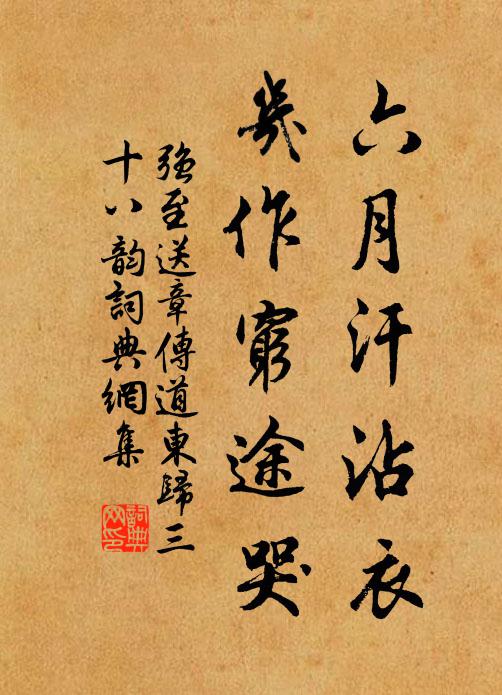 六月汗沾衣
幾作窮途哭
強至送章傳道東歸三
十八韵詞典網集
詞典
网印